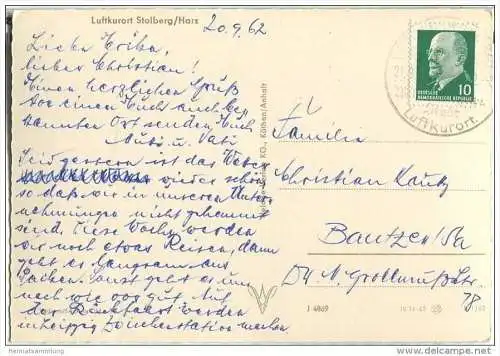 Luftkurort Stolberg/Harz
20.9.62
Liebe Erika,
lieber Christian!
Einen herzlichen Gruß
von einem Euch auch be-
kannten Ort senden Euch
Mutti u. Vati
Seit gestern ist das Wetter
wieder schön
so daß wir in unseren Unter-
nehmungen nicht gehemmt
sind. Diese Woche werden
wir noch etwas Reisen, dann
geht es langsam ans
Packen. Sonst geht es uns
nach wie vor gut. Auf
der Rückfahrt werden
in Leipzig Zwischenstation machen
KG., Köthen/Anhalt
10
DEUTSCHE
DEMOKRATISCHE REPUBLIK
Luftkurort
Familie
Christian
Bautzen/Sa
Dr. W.
78
J 4869
Heimatsammlung